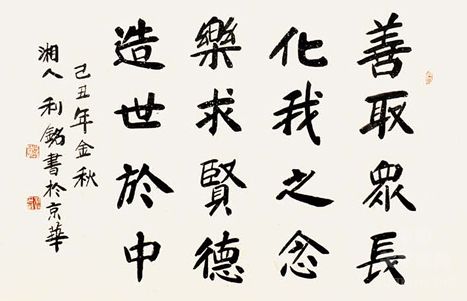 善取眾長
化我之念
樂求賢德
造世於中
己丑年金秋
湘人利銘書於京華